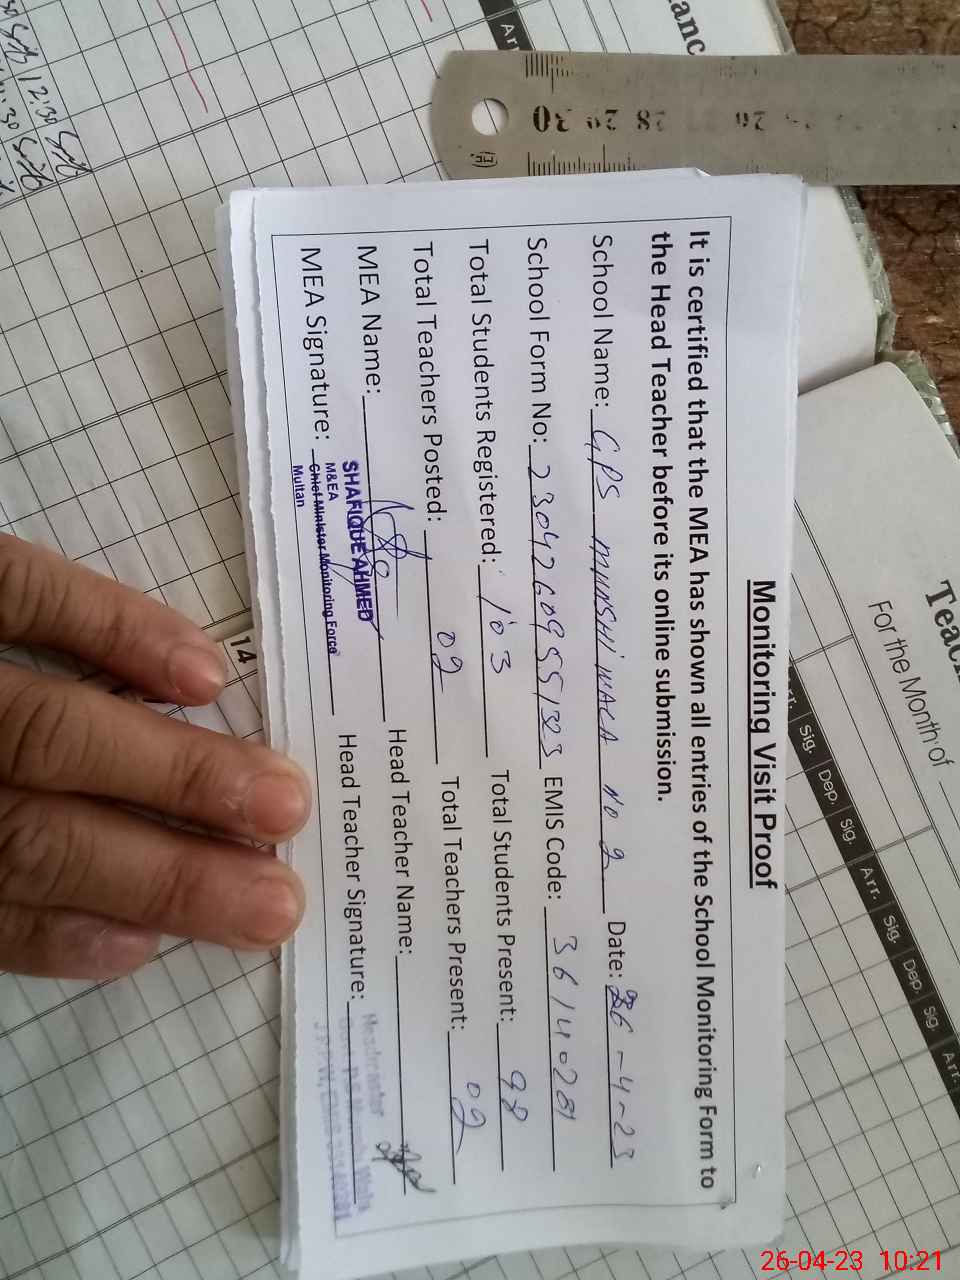 Monitoring Visit Proof
It is certified that the MEA has shown all entries of the School Monitoring Form to
the Head Teacher before its online submission.
School Name: GPS MUNSHI WALA NO 2 Date: 26-4-23
School Form No: 23042609551823 EMIS Code: 36140281
Total Students Registered: 103 Total Students Present: 98
Total Teachers Posted: 02 Total Teachers Present: 02
MEA Name: Head Teacher Name:
SHAFIQUE AHMED
MEA Signature: Head Teacher Signature:
M&EA
Chief Minister Monitoring Force
Multan
Headmaster
14
For the Month of
Sig. Dep. Sig. Arr. Sig. Dep. Sig. Arr.
30 28
12:30
26-04-23 10:21